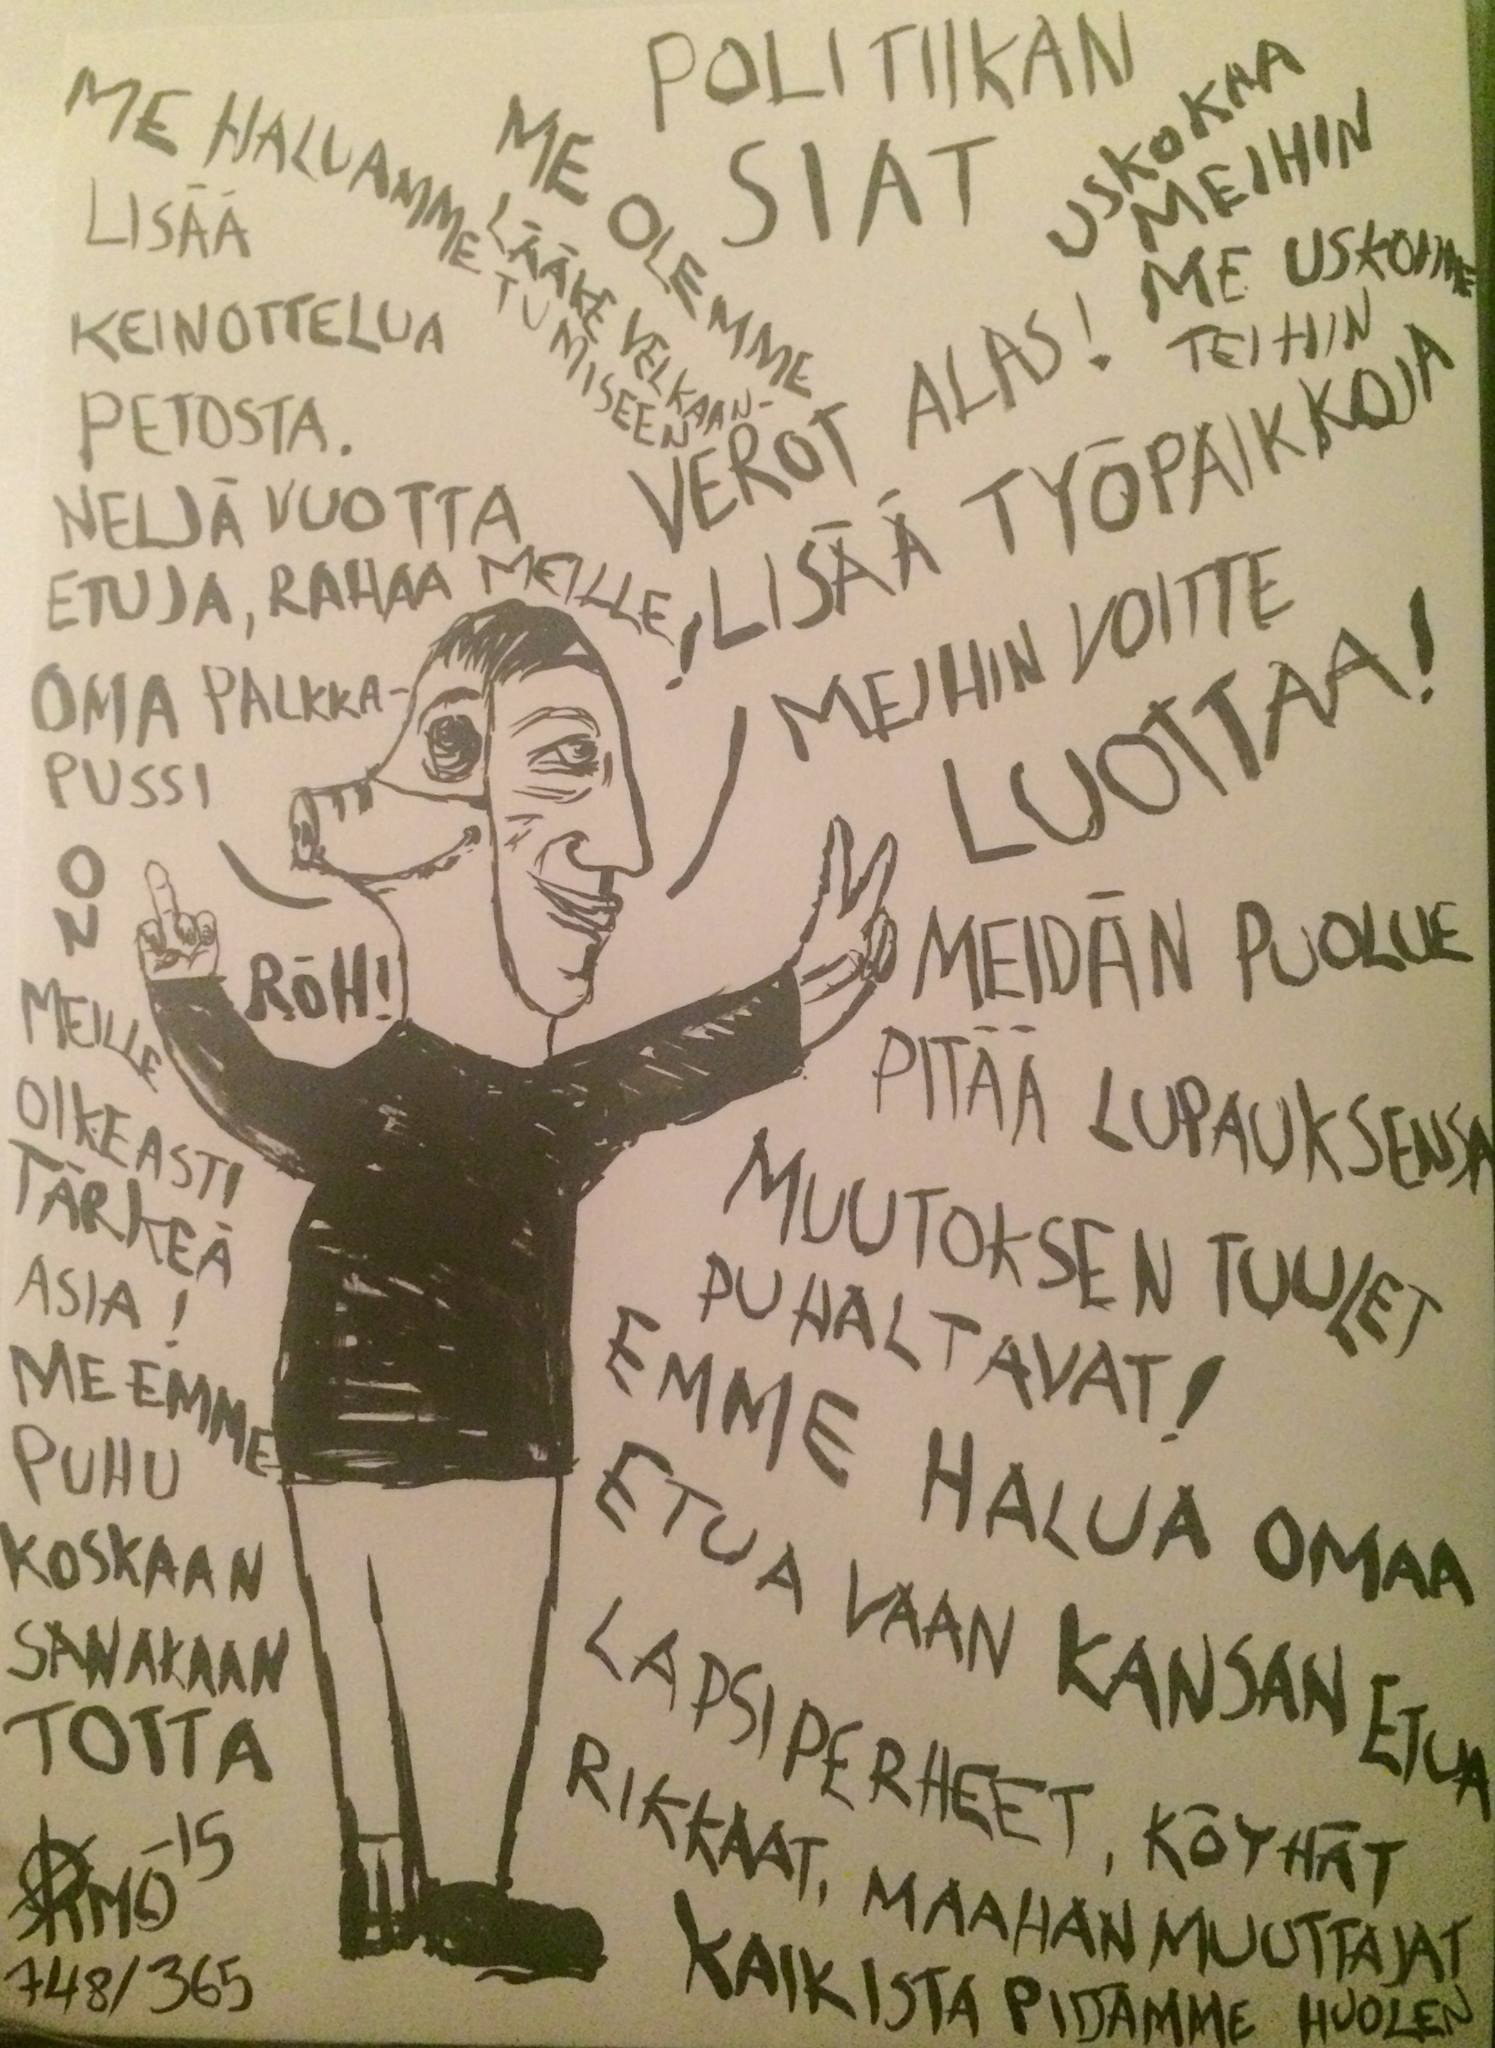 POLITIIKAN
SIAT
ME HALUAMME
LISÄÄ
KEINOTTELUA
PETOSTA.
NELJÄ VUOTTA
ETUJA, RAHAA MEILLE!
OMA PALKKA-
PUSSI
ON
MEILLE
OIKEASTI
TÄRKEÄ
ASIA!
ME EMME
PUHU
KOSKAAN
SANAKAAN
TOTTA
RÖH!
ME OLEMME
LÄÄKE VELKAAN-
TUMISEEN
USKOKAA
MEIHIN
ME USKOMME
TEIHIN
VEROT ALAS!
LISÄÄ TYÖPAIKKOJA
MEIHIN VOITTE
LUOTTAA!
MEIDÄN PUOLUE
PITÄÄ LUPAUKSENSA
MUUTOKSEN TUULET
PUHALTAVAT!
EMME HALUA OMAA
ETUA VAAN KANSAN ETUA
LAPSIPERHEET, KÖYHÄT
RIKKAAT, MAAHAN MUUTTAJAT
KAIKISTA PIDÄMME HUOLEN
-15
748/365